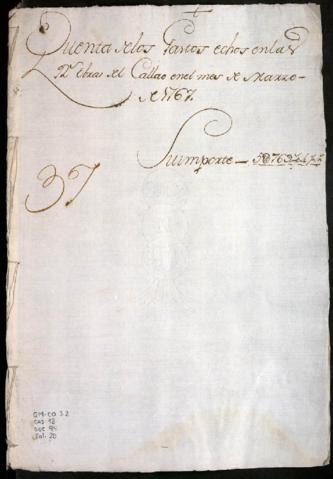 Quenta de los Gastos echos en las
Rs obras del Callao en el mes de Marzo
de 1767
Su importe
37
GM-CO 32
CAJ 12
DOC
Fol. 20